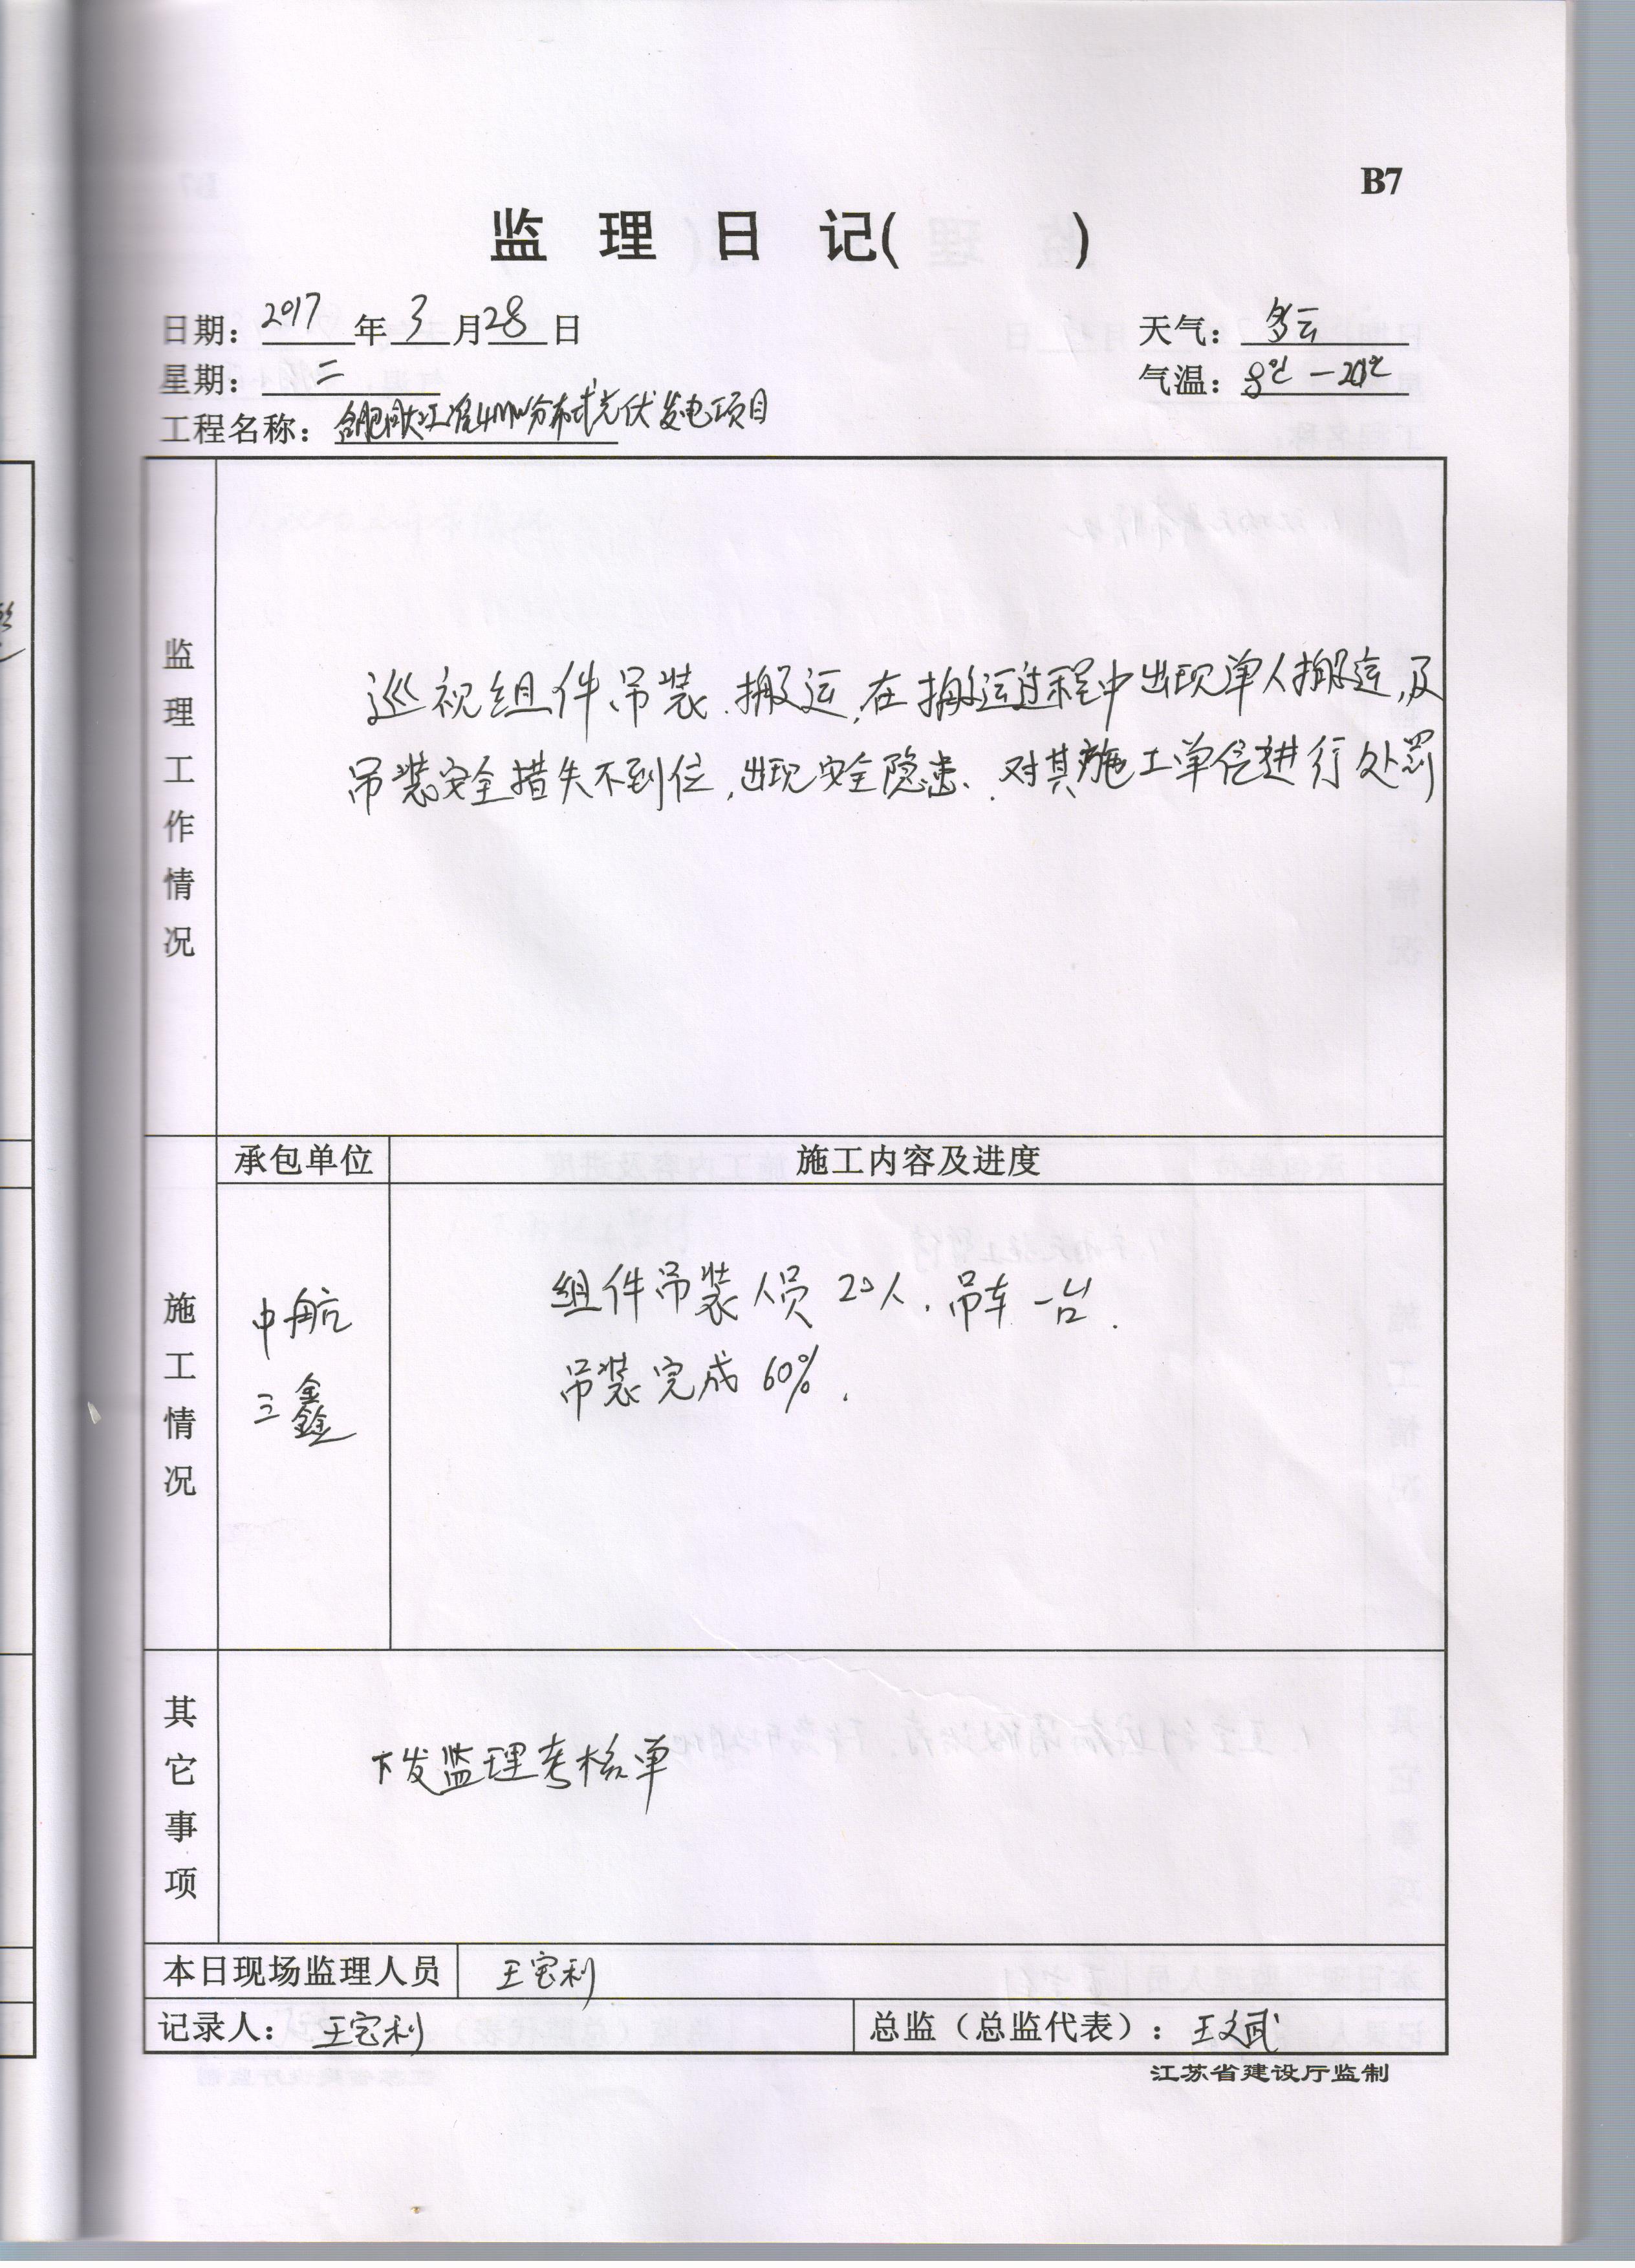 B7
监理日记( )
日期: 2017 年 3 月 28 日
天气: 多云
星期: 二
气温: 8℃-20℃
工程名称: 合肥 江淮4MW分布式光伏发电项目
监理工作情况
巡视组件吊装.搬运,在搬运过程中出现单人搬运,及
吊装安全措失不到位,出现安全隐患.对其施工单位进行处罚
承包单位 施工内容及进度
施工情况
中航
三鑫
组件吊装人员20人.吊车一台.
吊装完成60%.
其它事项
下发监理考核单
本日现场监理人员 王宝利
记录人: 王宝利 总监(总监代表): 王文武
江苏省建设厅监制